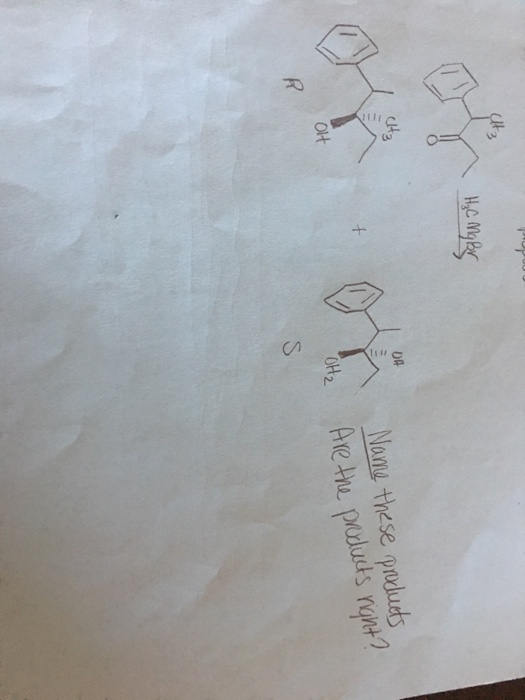 CH3
O
H3C MgBr
CH3
OH
R
+
OH
CH2
S
Name these products
Are the products right?